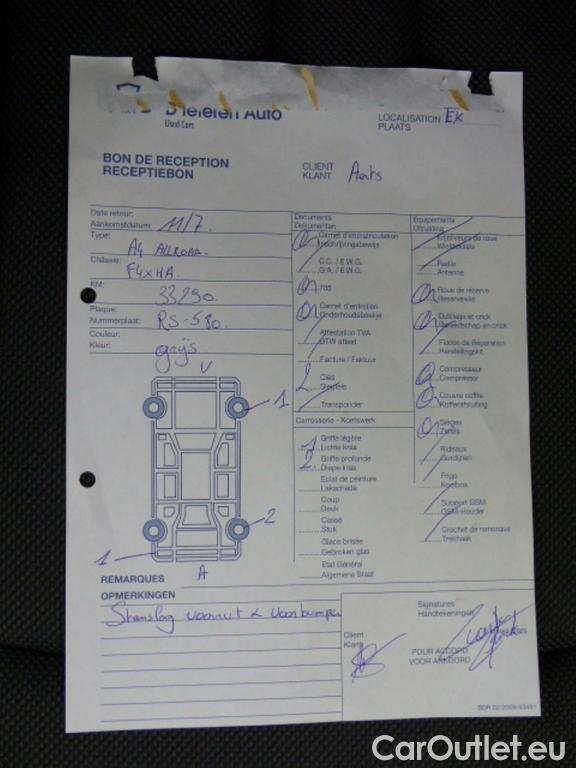 D'Ieteren Auto
Used Cars
LOCALISATION
PLAATS
EK
BON DE RECEPTION
RECEPTIEBON
CLIENT
KLANT
Aats
Date retour:
Aankomstdatum: 11/7.
Type:
A4 ALLROAD.
Châssie:
F4XHA.
KM:
33290.
Plaque:
Nummerplaat: RS-580.
Couleur:
Kleur: grijs
V
1
2
1
A
Documents
Dokumenten
Carnet d'immatriculation
Inschrijvingsbewijs
C.C. / E.W.G.
G.A. / E.W.G.
705
Carnet d'entretien
Onderhoudsboekje
Attestation TVA
BTW attest
Facture / Faktuur
2 Clés
Sleutels
Transponder
Carrosserie - Koetswerk
1 Griffe légère
Lichte kras
2 Griffe profonde
Diepe kras
Eclat de peinture
Lakschade
Coup
Deuk
Cassé
Stuk
Glace brisée
Gebroken glas
Etat Général
Algemene Staat
Equipements
Uitrusting
Enjoliveurs de roue
Wieldeksels
Radio
Antenne
Roue de réserve
Reservewiel
Outillage et crick
Gereedschap en crick
Flacon de Réparation
Herstellingskit
Compresseur
Compressor
Couvre coffre
Kofferafsluiting
Sièges
Zetels
Rideaux
Gordijnen
Frigo
Koelbox
Support GSM
GSM-Houder
Crochet de remorque
Trekhaak
REMARQUES
OPMERKINGEN
Steenslag voorruit & voorbumper
Signatures
Handtekeningen
Client
Klant
POUR ACCORD
VOOR AKKOORD
CarOutlet.eu